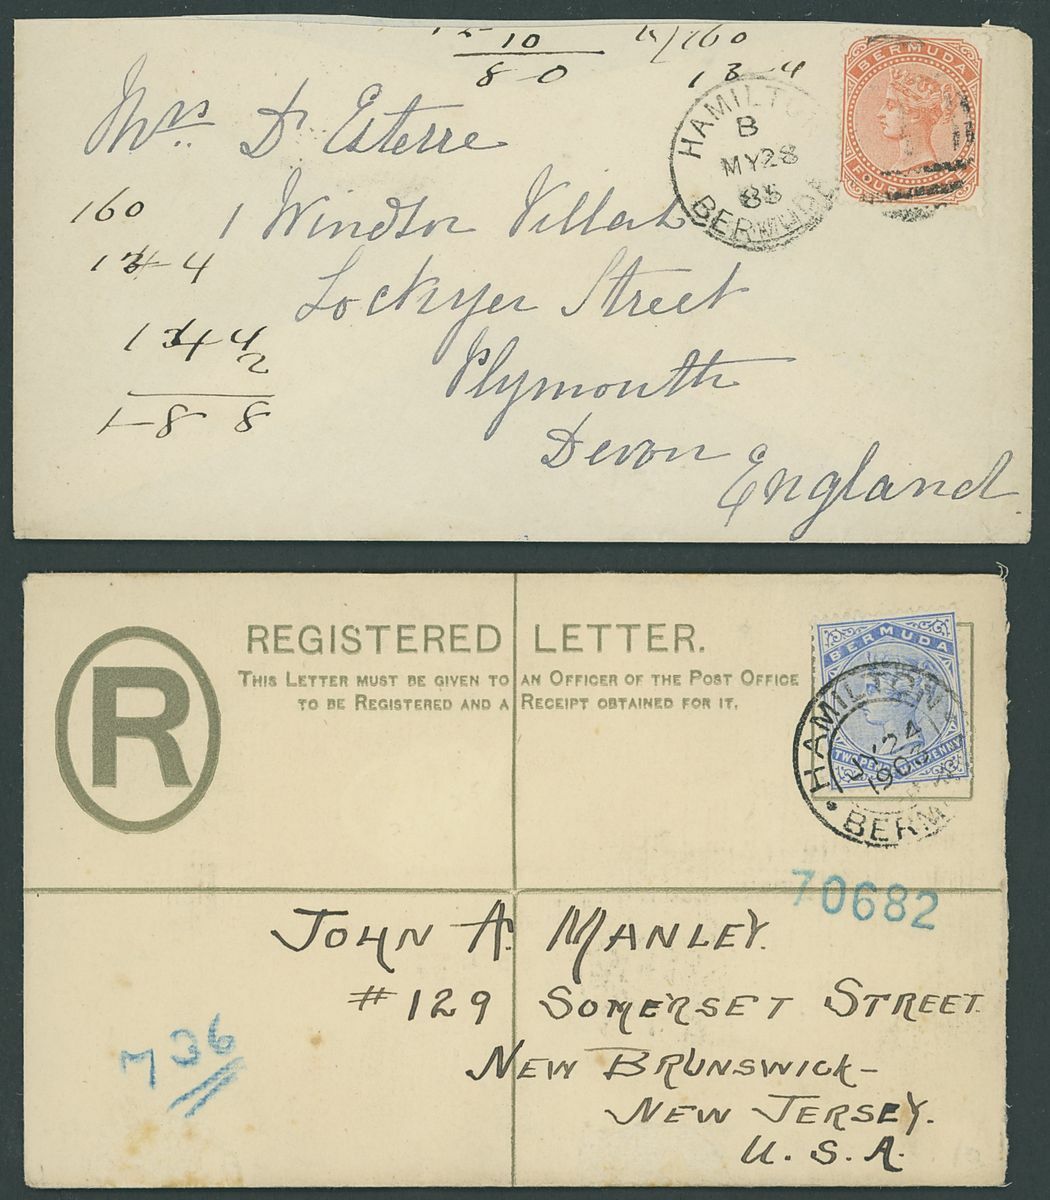 10
80
13-4
BERMUDA
FOUR
HAMILTON
B
MY 28
85
BERMUDA
Mrs. D'Esterre
1 Windsor Villas
Lockyer Street
Plymouth
Devon
England
160
13-4
144
2
1-8 8
R
REGISTERED LETTER.
THIS LETTER MUST BE GIVEN TO AN OFFICER OF THE POST OFFICE
TO BE REGISTERED AND A RECEIPT OBTAINED FOR IT.
BERMUDA
TWO PENCE HALFPENNY
HAMILTON
24
1903
BERM
70682
JOHN A. MANLEY.
#129 SOMERSET STREET.
NEW BRUNSWICK-
NEW JERSEY.
U.S.A.
736